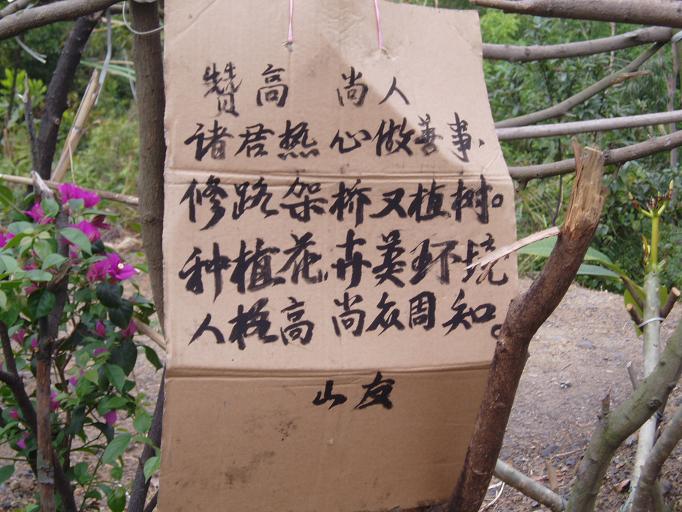 赞高尚人
诸君热心做善事,
修路架桥又植树。
种植花卉美环境
人格高尚众周知。
山友